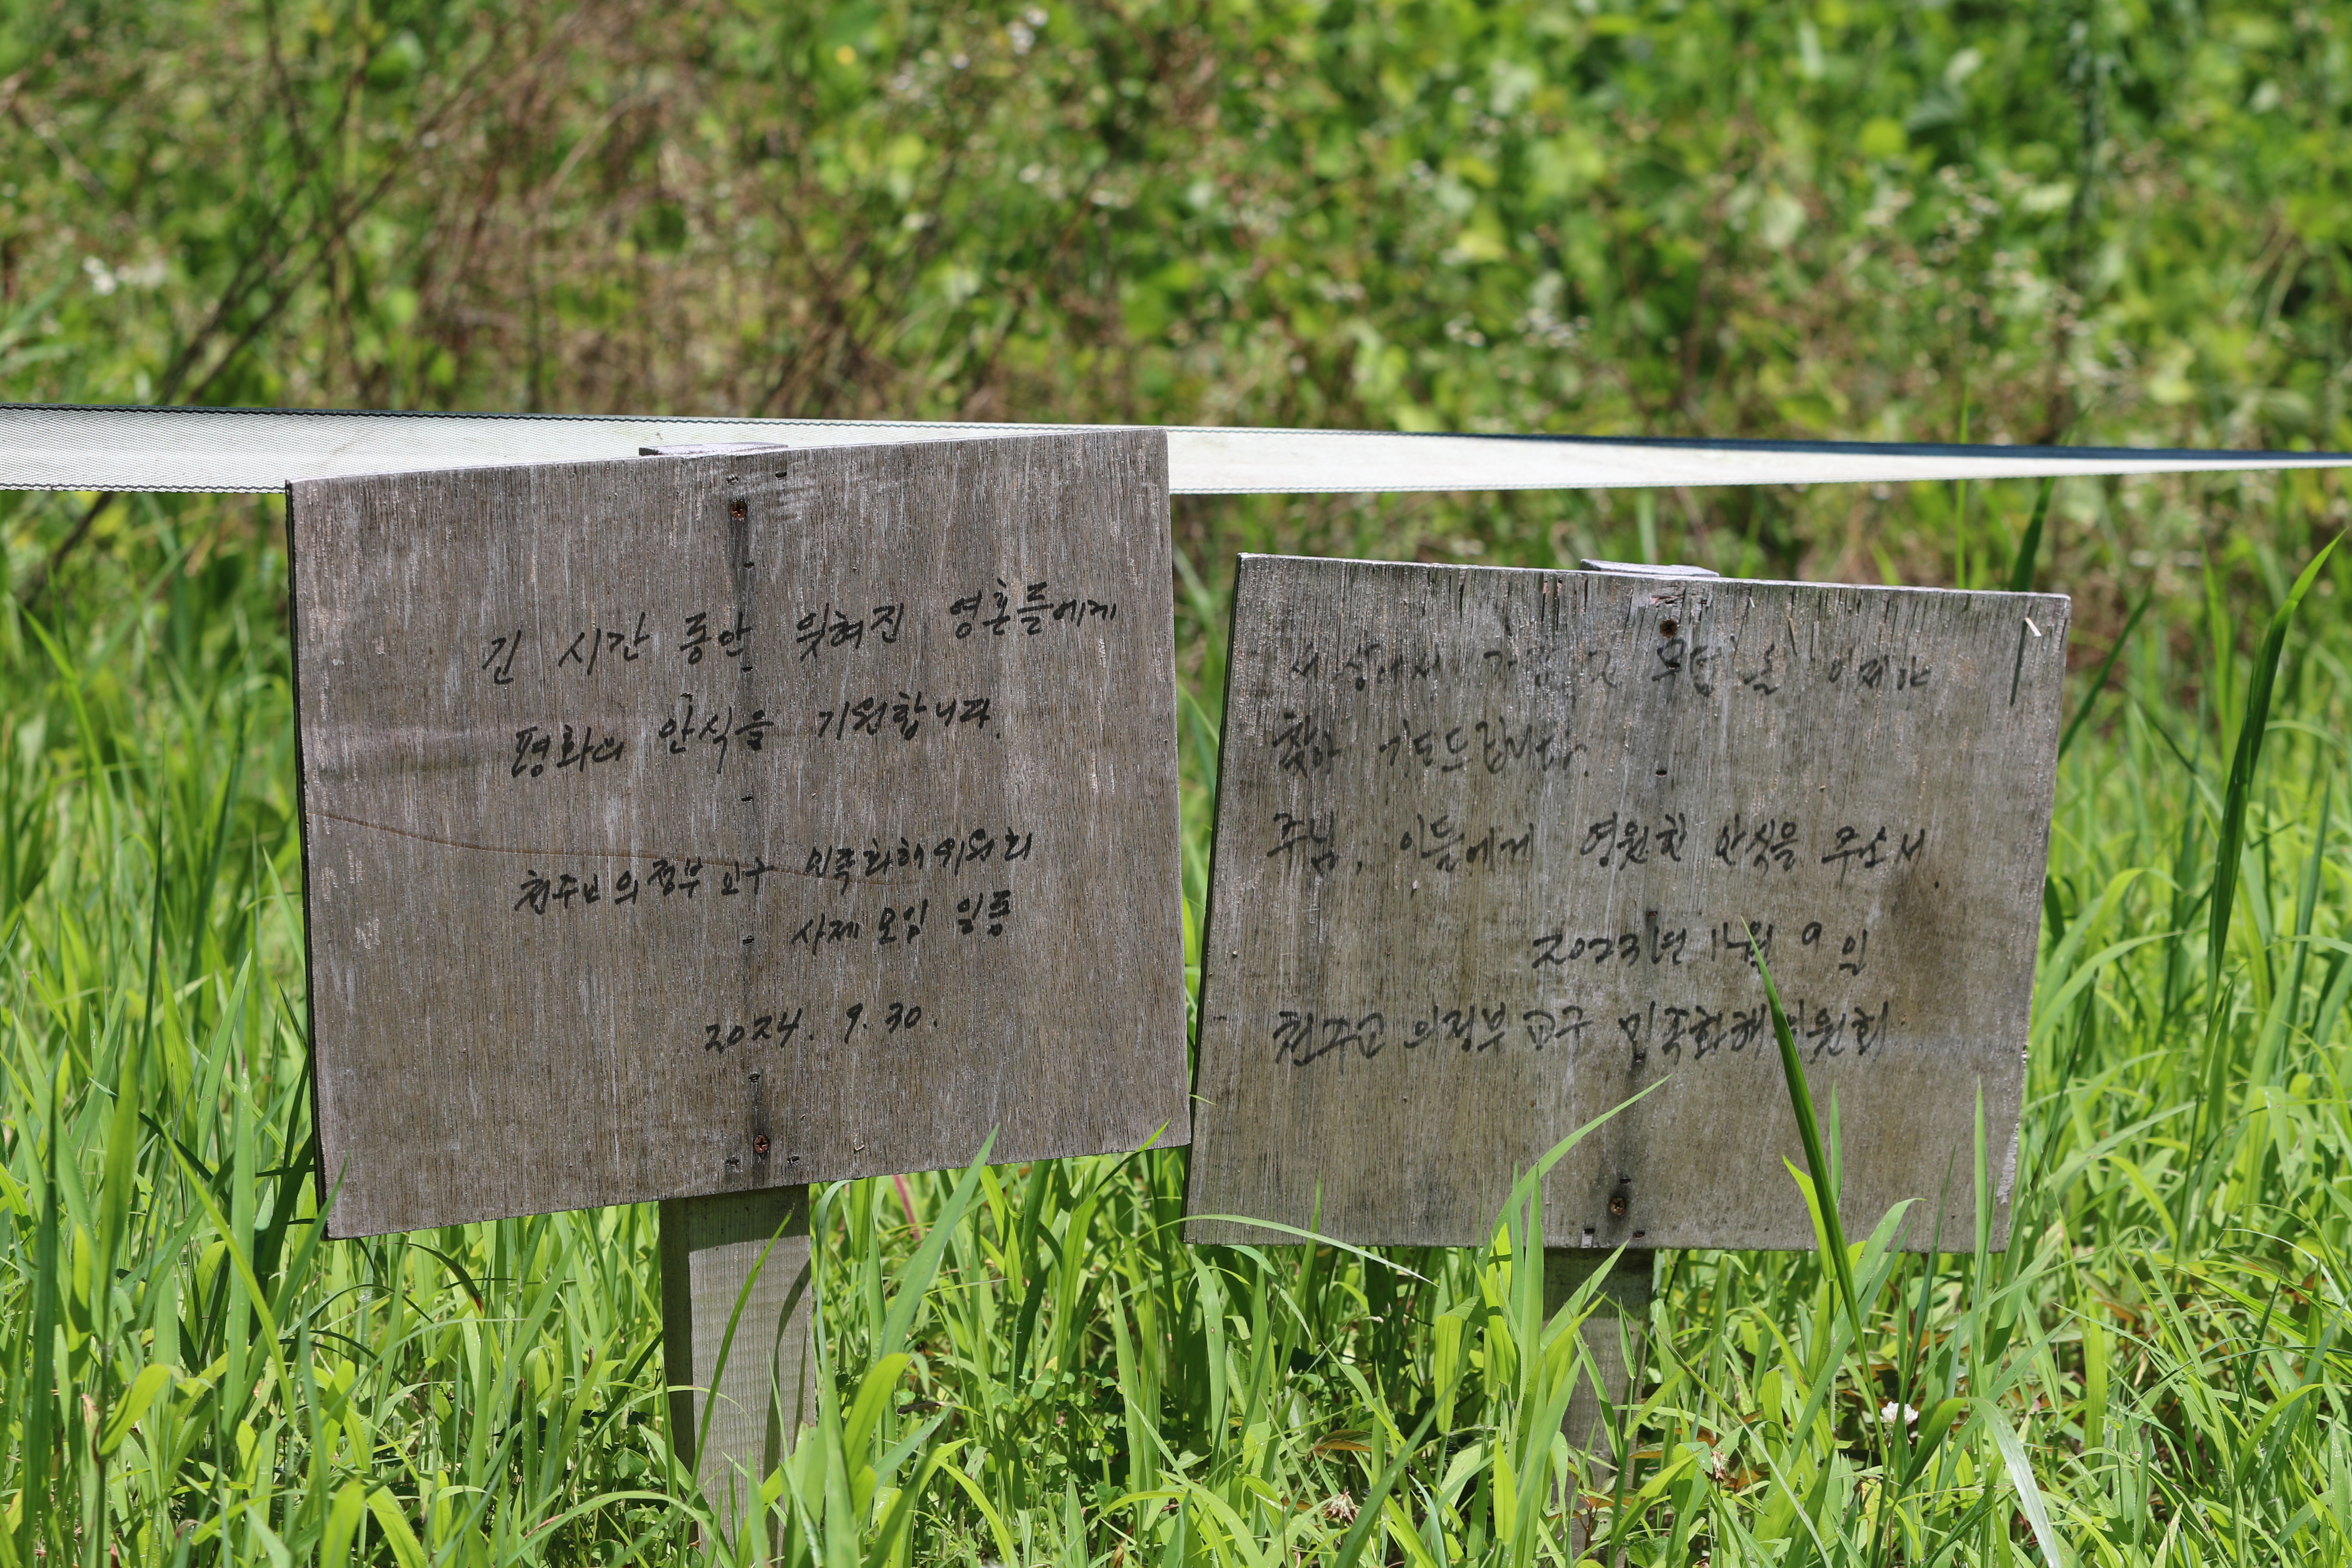 긴 시간 동안 잊혀진 영혼들에게
평화의 안식을 기원합니다.
천주교 의정부 교구 민족화해위원회
사제모임 일동
2024. 9. 30.
세상에서 분들을 이제야
찾아 기도드립니다.
주님, 이들에게 영원한 안식을 주소서.
2023년 11월 9일
천주교 의정부 교구 민족화해위원회